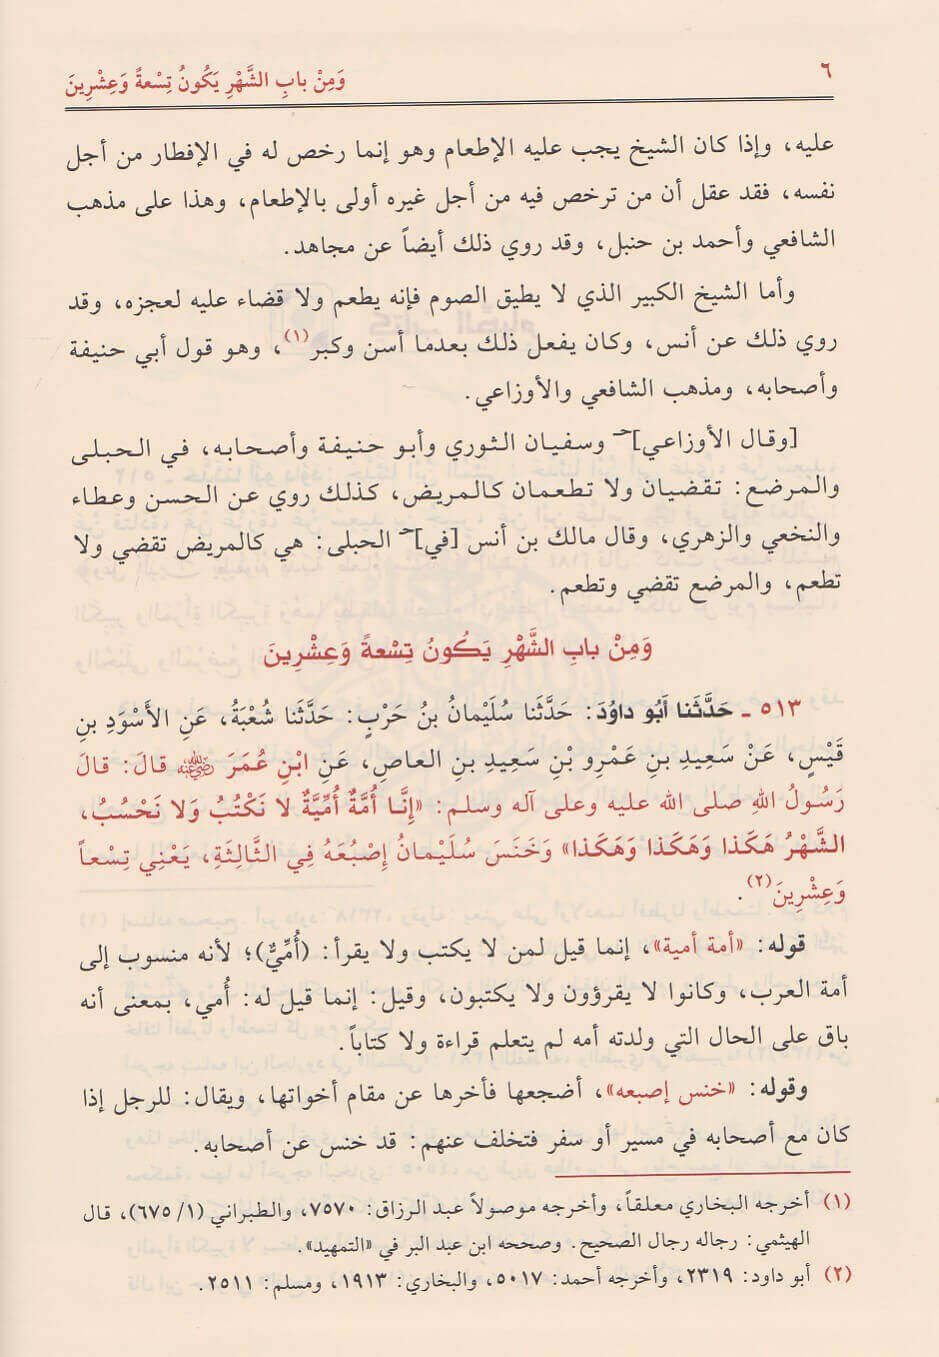 ٦
وَمِنْ بابِ الشَّهْرِ يَكُونُ تِسْعةً وَعِشْرِينَ
عليه، وإذا كان الشيخ يجب عليه الإطعام وهو إنما رخص له في الإفطار من أجل
نفسه، فقد عقل أن من ترخص فيه من أجل غيره أولى بالإطعام، وهذا على مذهب
الشافعي وأحمد بن حنبل، وقد روي ذلك أيضاً عن مجاهد.
وأما الشيخ الكبير الذي لا يطيق الصوم فإنه يطعم ولا قضاء عليه لعجزه، وقد
روي ذلك عن أنس، وكان يفعل ذلك بعدما أسن وكبر(١)، وهو قول أبي حنيفة
وأصحابه، ومذهب الشافعي والأوزاعي.
[وقال الأوزاعي]حـ وسفيان الثوري وأبو حنيفة وأصحابه، في الحبلى
والمرضع: تقضيان ولا تطعمان كالمريض، كذلك روي عن الحسن وعطاء
والنخعي والزهري، وقال مالك بن أنس [في]حـ الحبلى: هي كالمريض تقضي ولا
تطعم، والمرضع تقضي وتطعم.
وَمِنْ بابِ الشَّهْرِ يَكُونُ تِسْعةً وَعِشْرِينَ
٥١٣ ـ حَدَّثَنا أبُو داوُدَ: حَدَّثَنا سُلَيْمانُ بنُ حَرْبٍ: حَدَّثَنا شُعْبَةُ، عَنِ الأَسْوَدِ بنِ
قَيْسٍ، عَنْ سَعِيدِ بنِ عَمْرِو بْنِ سَعِيدِ بنِ العاصِ، عَنِ ابْنِ عُمَرَ رضي الله عنه قالَ: قالَ
رَسُولُ اللهِ صلى الله عليه وعلى آله وسلم: «إِنَّا أُمَّةٌ أُمِّيَّةٌ لا نَكْتُبُ وَلا نَحْسُبُ،
الشَّهْرُ هَكَذا وَهَكَذا وَهَكَذا» وَخَنَسَ سُلَيْمانُ إصْبُعَهُ فِي الثَّالِثَةِ، يَعْنِي تِسْعاً
وَعِشْرِينَ(٢).
قوله: «أمة أمية»، إنما قيل لمن لا يكتب ولا يقرأ: (أُمِّيٌّ)؛ لأنه منسوب إلى
أمة العرب، وكانوا لا يقرؤون ولا يكتبون، وقيل: إنما قيل له: أُمي، بمعنى أنه
باق على الحال التي ولدته أمه لم يتعلم قراءة ولا كتاباً.
وقوله: «خنس إصبعه»، أضجعها فأخرها عن مقام أخواتها، ويقال: للرجل إذا
كان مع أصحابه في مسير أو سفر فتخلف عنهم: قد خنس عن أصحابه.
(١) أخرجه البخاري معلقاً، وأخرجه موصولاً عبد الرزاق: ٧٥٧٠، والطبراني (١/ ٦٧٥)، قال
الهيثمي: رجاله رجال الصحيح. وصححه ابن عبد البر في «التمهيد».
(٢) أبو داود: ٢٣١٩، وأخرجه أحمد: ٥٠١٧، والبخاري: ١٩١٣، ومسلم: ٢٥١١.